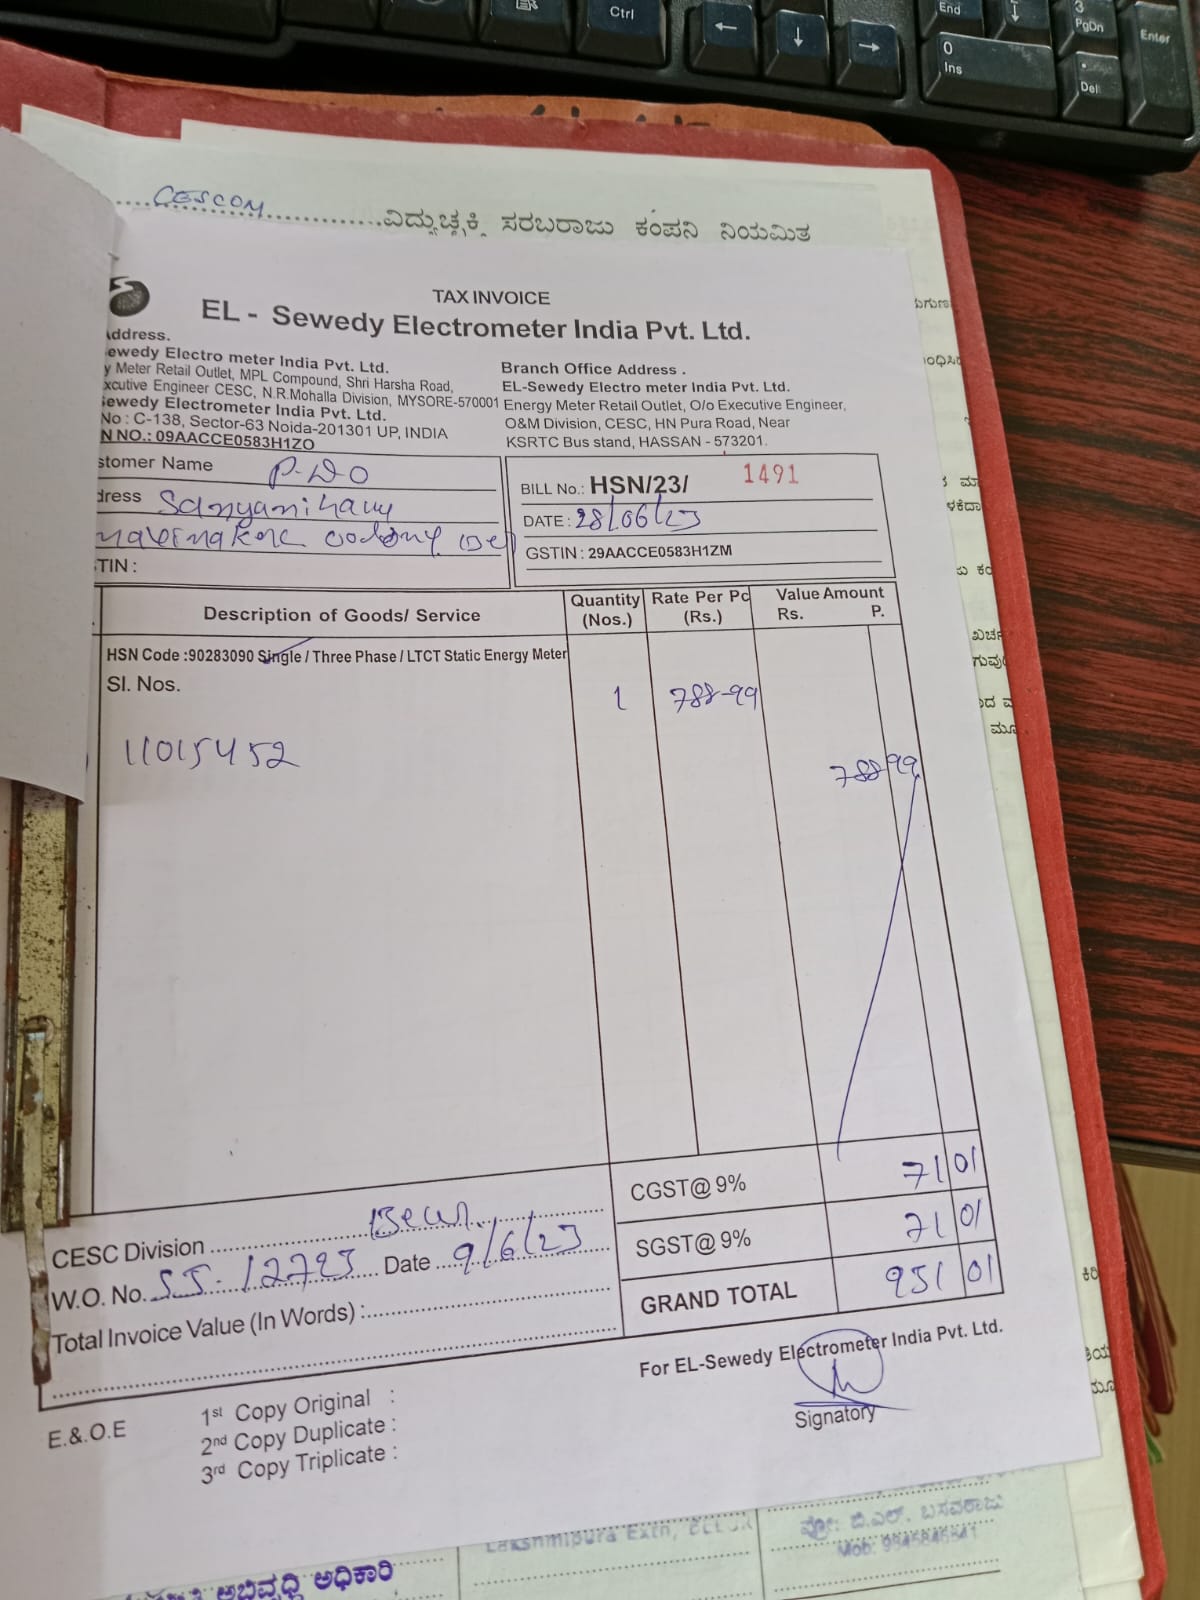 Ctrl
End
3
PgDn
Enter
0
Ins
Del
CESCOM
ವಿದ್ಯುಚ್ಛಕ್ತಿ ಸರಬರಾಜು ಕಂಪನಿ ನಿಯಮಿತ
TAX INVOICE
EL - Sewedy Electrometer India Pvt. Ltd.
ddress.
ewedy Electro meter India Pvt. Ltd.
y Meter Retail Outlet, MPL Compound, Shri Harsha Road,
xcutive Engineer CESC, N.R.Mohalla Division, MYSORE-570001
ewedy Electrometer India Pvt. Ltd.
No : C-138, Sector-63 Noida-201301 UP, INDIA
N NO.: 09AACCE0583H1ZO
Branch Office Address .
EL-Sewedy Electro meter India Pvt. Ltd.
Energy Meter Retail Outlet, O/o Executive Engineer,
O&M Division, CESC, HN Pura Road, Near
KSRTC Bus stand, HASSAN - 573201.
stomer Name P.DO
dress
TIN :
BILL No.: HSN/23/ 1491
DATE : 28/06/23
GSTIN : 29AACCE0583H1ZM
Description of Goods/ Service Quantity (Nos.) Rate Per Pc (Rs.) Value Amount Rs. P.
HSN Code :90283090 Single / Three Phase / LTCT Static Energy Meter
Sl. Nos.
1 788-99
11015452
788 99
CGST@ 9% 71 01
SGST@ 9% 71 01
GRAND TOTAL 931 01
CESC Division
W.O. No. S.J. 12723 Date 9/6/23
Total Invoice Value (In Words) :
For EL-Sewedy Electrometer India Pvt. Ltd.
Signatory
E.&.O.E
1st Copy Original :
2nd Copy Duplicate :
3rd Copy Triplicate :
Lakshmipura Extn,
ಅಭಿವೃದ್ಧಿ ಅಧಿಕಾರಿ